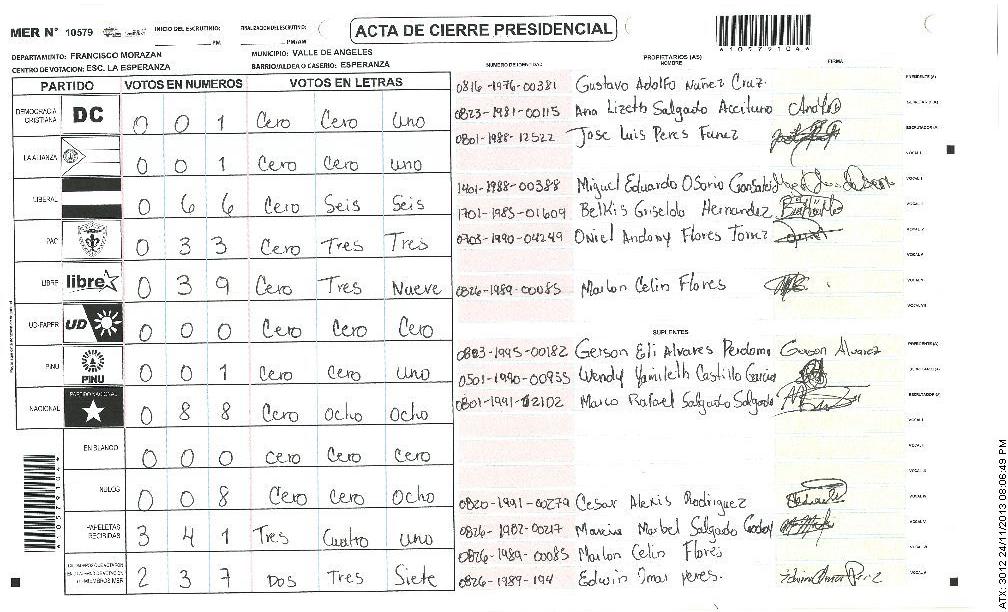 MER N° 10579
INICIO DEL ESCRUTINIO:
PM
FINALIZACION ESCRUTINIO:
PM/AM
ACTA DE CIERRE PRESIDENCIAL
*10579104*
DEPARTAMENTO: FRANCISCO MORAZAN
MUNICIPIO: VALLE DE ANGELES
CENTRO DE VOTACION: ESC. LA ESPERANZA
BARRIO/ALDEA O CASERIO: ESPERANZA
PARTIDO VOTOS EN NUMEROS VOTOS EN LETRAS
DEMOCRACIA CRISTIANA DC 0 0 1 Cero Cero Uno
LA ALIANZA 0 0 1 Cero Cero uno
LIBERAL 0 6 6 Cero Seis Seis
PAC 0 3 3 Cero Tres Tres
LIBRE libre 0 3 9 Cero Tres Nueve
UD-FAPER UD 0 0 0 Cero Cero Cero
PINU PINU 0 0 1 Cero Cero uno
NACIONAL PARTIDO NACIONAL 0 8 8 Cero Ocho Ocho
EN BLANCO 0 0 0 Cero Cero Cero
NULOS 0 0 8 Cero Cero Ocho
PAPELETAS RECIBIDAS 3 4 1 Tres Cuatro uno
2 3 7 Dos Tres Siete
NUMERO DE IDENTIDAD PROPIETARIOS (AS) NOMBRE FIRMA
0816-1976-00381 Gustavo Adolfo Nuñez Cruz PRESIDENTE(A)
0823-1981-00115 Ana Lizeth Salgado Aceituno SECRETARIO(A)
0801-1988-12522 Jose Luis Peres Funez ESCRUTADOR(A)
VOCAL I
1401-1988-00388 Miguel Eduardo Osorio Gonsales
1701-1985-01609 Belkis Griselda Hernandez
0703-1990-04249 Oniel Andony Flores Torrez
0826-1989-00085 Marlon Celin Flores
SUPLENTES
0883-1995-00182 Gerson Eli Alvares Perdomo Gerson Alvarez PRESIDENTE(A)
0501-1990-00935 Wendy Yamileth Castillo Garcia SECRETARIO(A)
0801-1991-12102 Marco Rafael Salgado Salgado ESCRUTADOR(A)
0820-1991-00279 Cesar Alexis Rodriguez
0826-1982-00217 Marcia Maribel Salgado Godoy
0826-1989-00085 Marlon Celin Flores
0826-1989-194 Edwin Omar Peres.
*10579104*
ATX:3012 24/11/2013 08:06:49 PM